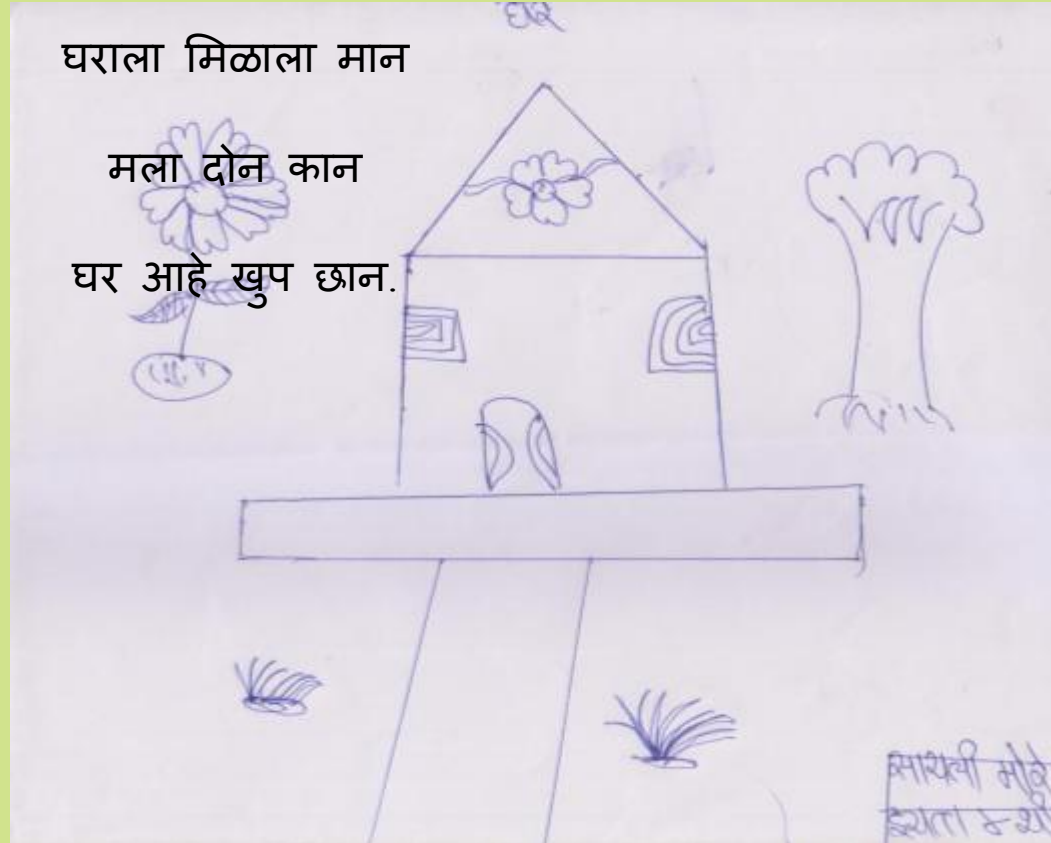 घर
घराला मिळाला मान
मला दोन कान
घर आहे खुप छान.
सायली मोरे
इयत्ता ४-थी